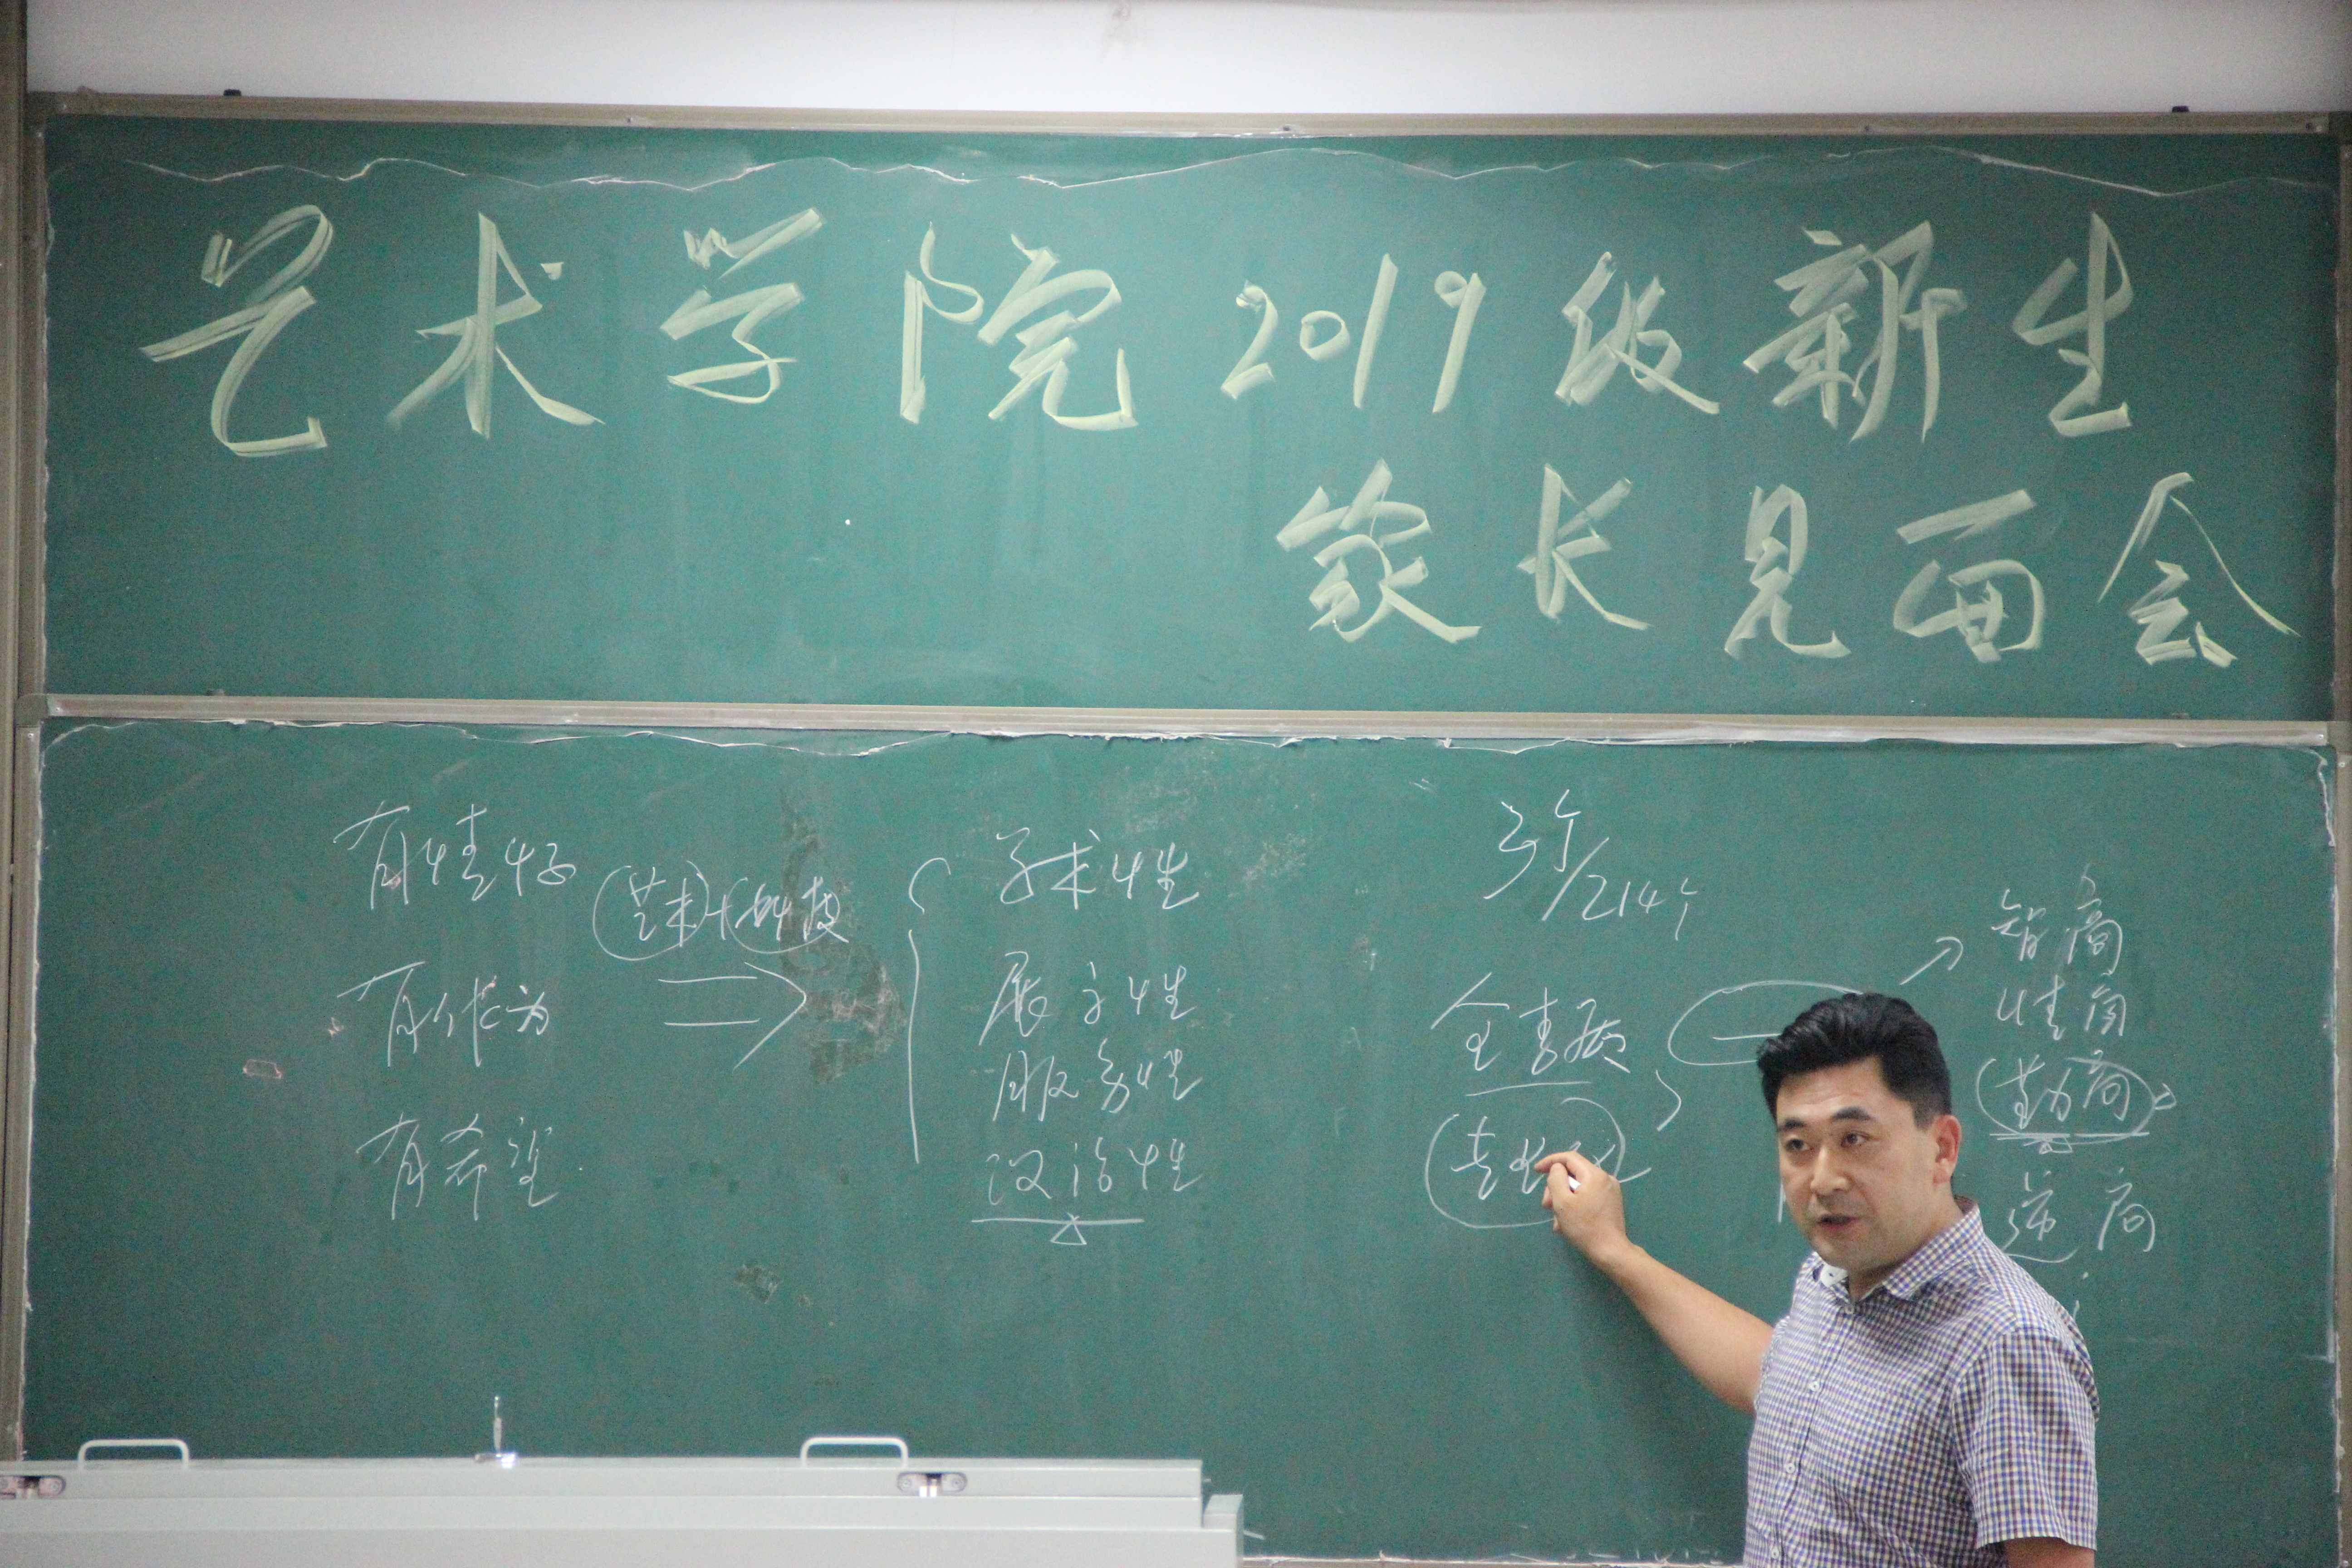 艺术学院2019级新生
家长见面会
有情怀
有作为
有希望
艺术+科技
学术性
展示性
服务性
政治性
3个/214个
全素质
智商
情商
勤商
逆商